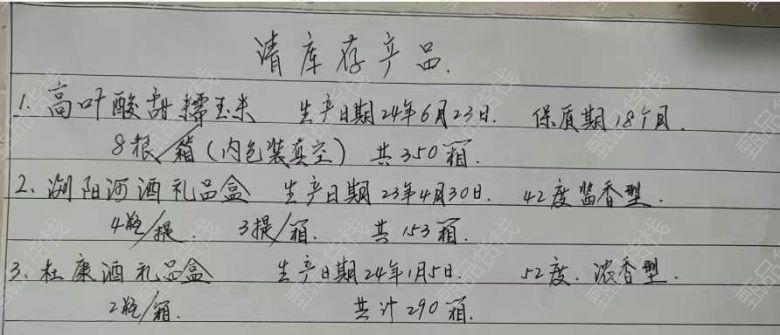 清库存产品.
1. 高叶酸甜糯玉米 生产日期24年6月23日. 保质期18个月.
8根/箱(内包装真空) 共350箱.
2、浏阳河酒礼品盒 生产日期23年4月30日. 42度酱香型.
4瓶/提. 3提/箱. 共153箱.
3、杜康酒礼品盒 生产日期24年1月5日. 52度.浓香型.
2瓶/箱. 共计290箱.